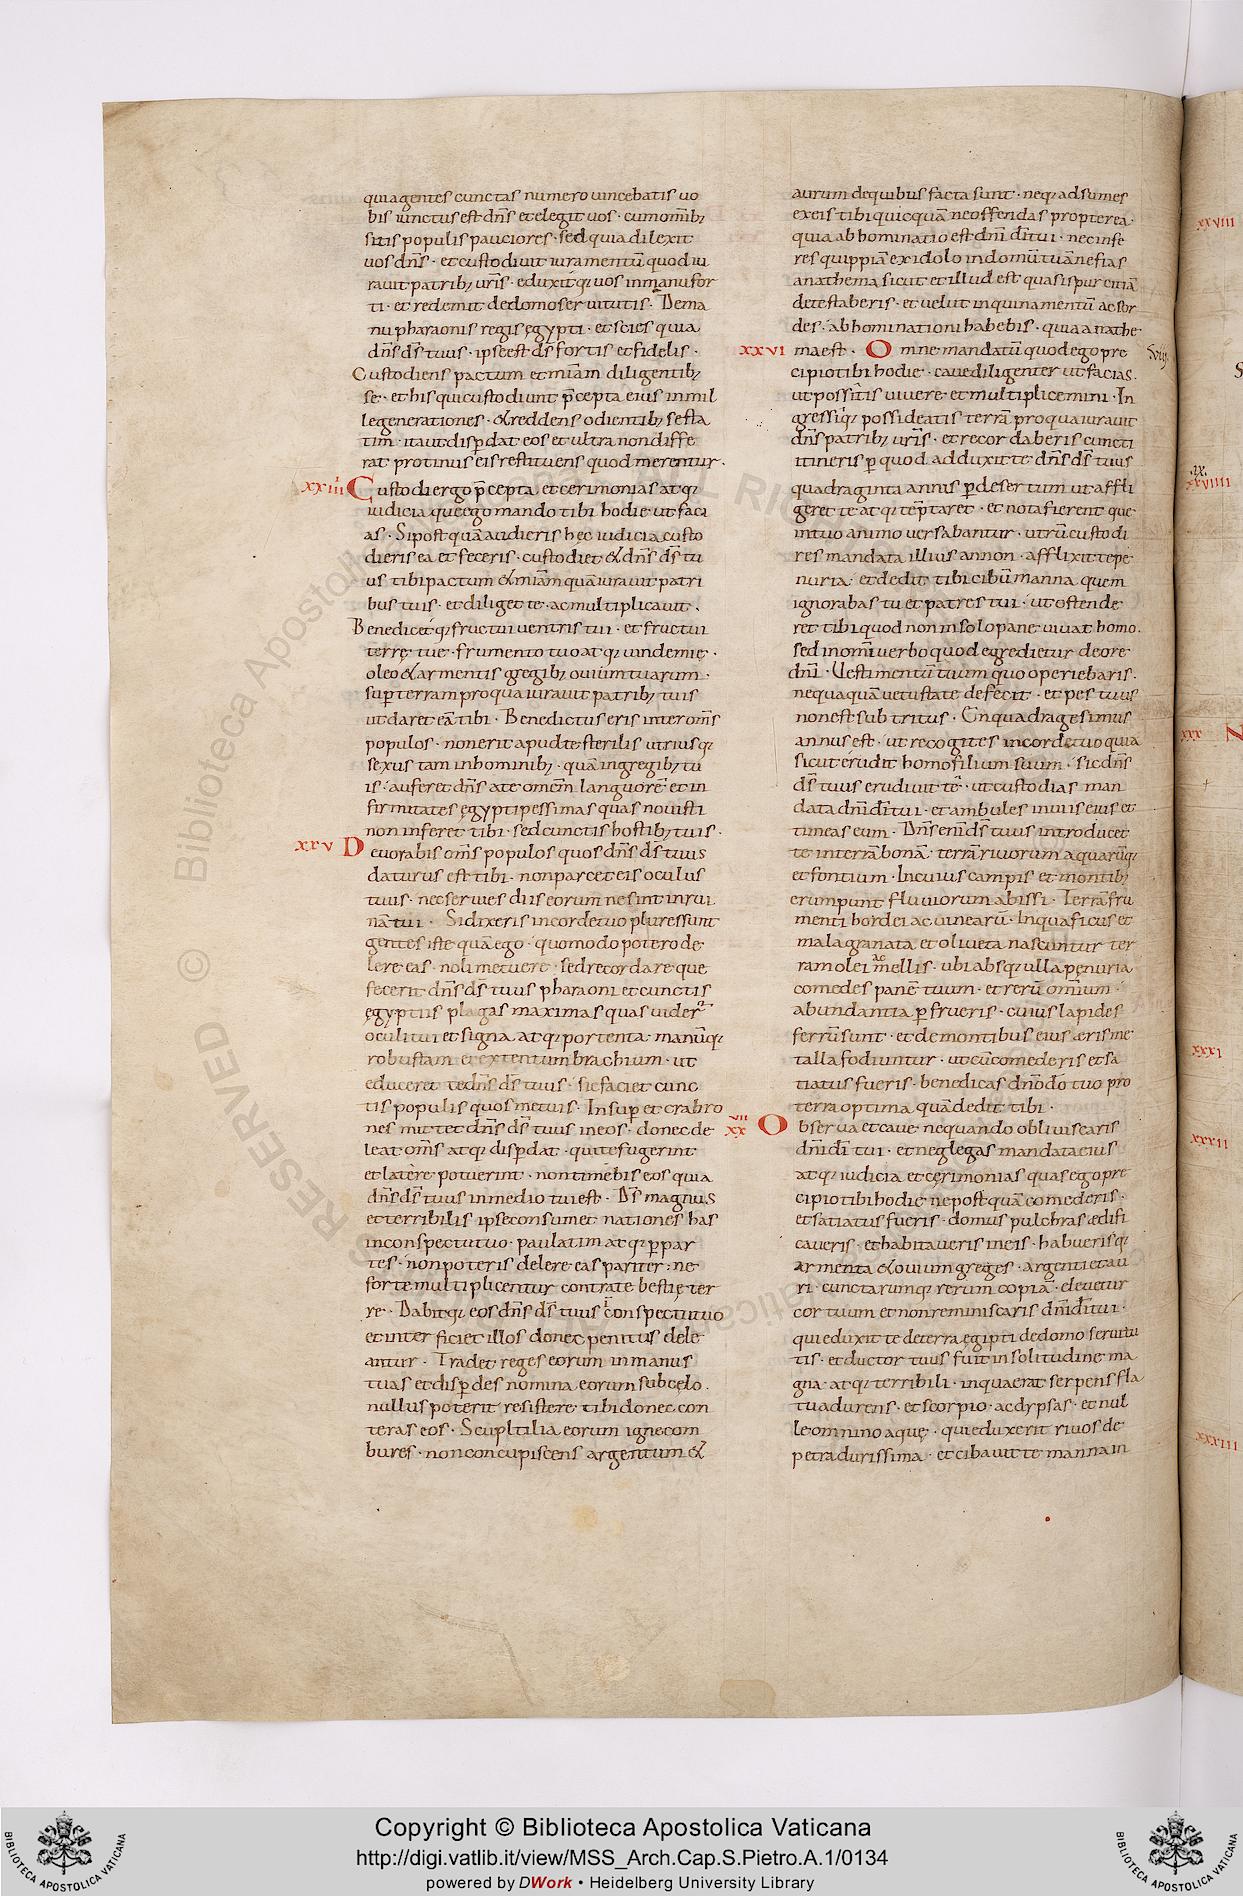 quia gentes cunctas numero uincebatis uo
bis iunctus est dñs et elegit uos · cum om̃ib;
sitis populis pauciores · sed quia dilexit
uos dñs · et custodiuit iuramentũ quod iu
rauit patrib; ur̃is · eduxitq; uos in manu for
ti · et redemit de domo seruitutis · De ma
nu pharaonis regis ęgypti · et scies quia
dñs ds̃ tuus · ipse est ds̃ fortis et fidelis ·
Custodiens pactum et mĩam diligentib;
se · et his qui custodiunt p̃cepta eius in mil
le generationes · & reddens odientib; se sta
tim · ita ut disp̱dat eos et ultra non diffe
rat protinus eis restituens quod merentur ·
xxiiii Custodi ergo p̃cepta et cerimonias atq;
iudicia que ego mando tibi hodie ut faci
as · Si post quã audieris hęc iudicia custo
dieris ea et feceris · custodiet & dñs ds̃ tu
us tibi pactum & mĩam quã iurauit patri
bus tuis · et diliget te · ac multiplicauit ·
Benedicetq; fructui uentris tui · et fructui
terrę tue · frumento tuo atq; uindemię ·
oleo & armentis gregib; ouium tuarum ·
sup̱ terram pro qua iurauit patrib; tuis
ut daret eã tibi · Benedictus eris inter om̃s
populos · non erit apud te sterilis utriusq;
sexus tam in hominib; · quã in gregib; tu
is · auferet dñs a te om̃em languorẽ et in
firmitates ęgypti pessimas quas nouisti
non inferet tibi · sed cunctis hostib; tuis ·
xxv Deuorabis om̃s populos quos dñs ds̃ tuus
daturus est tibi · non parcet eis oculus
tuus · nec seruies diis eorum ne sint in rui
nã tui · Si dixeris in corde tuo plures sunt
gentes iste quã ego · quomodo potero de
lere eas · noli metuere · sed recordare que
fecerit dñs ds̃ tuus pharaoni et cunctis
ęgyptiis plagas maximas quas uider̃
oculi tui et signa atq; portenta · manũq;
robustam et extentum brachium · ut
educeret te dñs ds̃ tuus · sic faciet cunc
tis populis quos metuis · Insup̱ et crabro
nes mittet dñs ds̃ tuus in eos · donec de
leat om̃s atq; disp̱dat · qui te fugerint
et latere potuerint · non timebis eos quia
dñs ds̃ tuus in medio tui est · Ds̃ magnus
et terribilis ipse consumet nationes has
in conspectu tuo · paulatim atq; p̱ par
tes · non poteris delere eas pariter : ne
forte multiplicentur contra te bestię ter
rę · Dabitq; eos dñs ds̃ tuus conspectu tuo
et interficiet illos donec penitus dele
antur · Tradet reges eorum in manus
tuas et disp̱des nomina eorum sub cęlo ·
nullus poterit resistere tibi donec con
teras eos · Sculptilia eorum igne com
bures · non concupiscens argentum &
aurum de quibus facta sunt · neq; adsumes
ex eis tibi quicquã ne offendas propterea ·
quia abhominatio est dñi dĩ tui · nec infe
res quippiã ex idolo in domũ tuã ne fias
anathema sicut et illud est quasi spurcitiã
detestaberis · et uelut inquinamentũ ac sor
des · abhominationi habebis · quia anathe
xxvi ma est · Omne mandatũ quod ego pre
cipio tibi hodie · caue diligenter ut facias ·
ut possitis uiuere et multiplicemini · In
gressiq; possideatis terrã pro qua iurauit
dñs patrib; ur̃is · et recordaberis cuncti
itineris p̱ quod adduxit te dñs ds̃ tuus
quadraginta annis p̱ desertum ut affli
geret te atq; tẽptaret · et nota fierent que
in tuo animo uersabantur · utrũ custodi
res mandata illius an non · afflixit te pe
nuria · et dedit tibi cibũ manna quem
ignorabas tu et patres tui · ut ostende
ret tibi quod non in solo pane uiuat homo ·
sed in om̃i uerbo quod egredietur de ore
dñi · Uestimentũ tuum quo operiebaris ·
nequaquã uetustate defecit · et pes tuus
non est subtritus · En quadragesimus
annus est · ut recogites in corde tuo quia
sicut erudit homo filium suum · sic dñs
ds̃ tuus erudiuit te · ut custodias man
data dñi dĩ tui · et ambules in uiis eius et
timeas eum · Dñs enĩ ds̃ tuus introducet
te in terrã bonã : terrã riuorum aquarũq;
et fontium · In cuius campis et montib;
erumpunt fluuiorum abissi · Terrã fru
menti hordei ac uinearũ · In qua ficus et
mala granata et oliueta nascuntur · ter
ram olei ac mellis · ubi absq; ulla penuria
comedes panẽ tuum · et rerũ omnium ·
abundantia p̱frueris · cuius lapides
ferrũ sunt · et de montibus eius æris me
talla fodiuntur · ut cũ comederis et sa
tiatus fueris · benedicas dño dõ tuo pro
terra optima quã dedit tibi ·
xxvii Obserua et caue nequando obliuiscaris
dñi dĩ tui · et neglegas mandata eius
atq; iudicia et cęrimonias quas ego pre
cipio tibi hodie ne post quã comederis ·
et satiatus fueris · domus pulchras ædifi
caueris · et habitaueris in eis · habuerisq;
armenta & ouium greges · argenti et au
ri · cunctarumq; rerum copiã · eleuetur
cor tuum et non reminiscaris dñi dĩ tui ·
qui eduxit te de terra ęgipti de domo seruitu
tis · et ductor tuus fuit in solitudine ma
gna atq; terribili · in qua erat serpens fla
tu adurens · et scorpio · ac dypsas · et nul
le omnino aquę · qui eduxerit riuos de
petra durissima · et cibauit te manna in
xxviii
xxviiii
xxx
xxxi
xxxii
xxxiii
Copyright © Biblioteca Apostolica Vaticana
http://digi.vatlib.it/view/MSS_Arch.Cap.S.Pietro.A.1/0134
powered by DWork • Heidelberg University Library